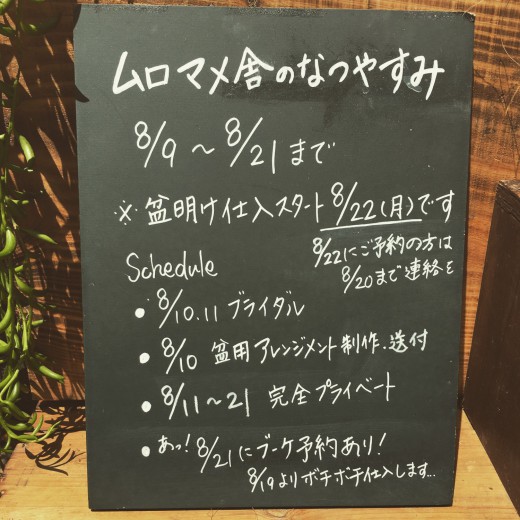 ムロマメ舎のなつやすみ
8/9〜8/21まで
※盆明け仕入スタート8/22(月)です
8/22にご予約の方は
8/20まで連絡を
Schedule
・8/10.11 ブライダル
・8/10 盆用アレンジメント制作.送付
・8/11〜21 完全プライベート
・あっ!8/21にブーケ予約あり!
8/19よりボチボチ仕入します...